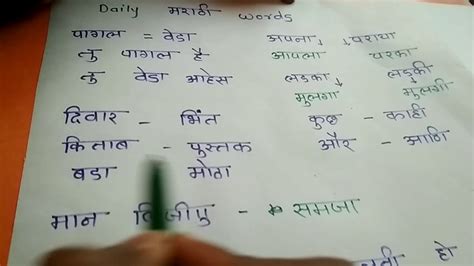 Daily मराठी words
पागल = वेडा अपना पराया
तु पागल है आपला परका
तु वेडा आहेस लड़का लड़की
मुलगा मुलगी
दिवार - भिंत कुछ - काही
किताब - पुस्तक और - आणि
बडा मोठा
मान - समजा
हो